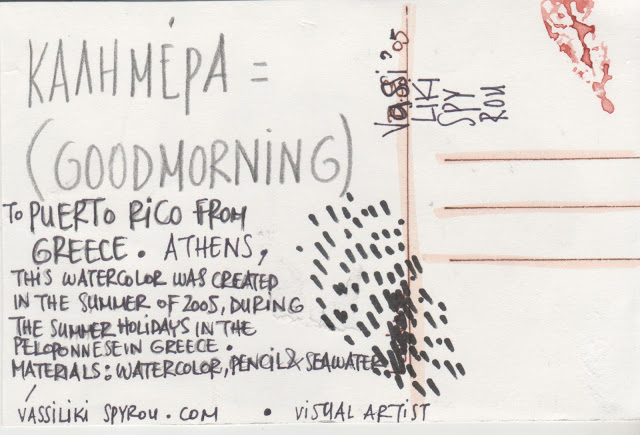 ΚΑΛΗΜΈΡΑ =
(GOODMORNING)
TO PUERTO RICO FROM
GREECE. ATHENS,
THIS WATERCOLOR WAS CREATED
IN THE SUMMER OF 2005, DURING
THE SUMMER HOLIDAYS IN THE
PELOPONNESE IN GREECE.
MATERIALS: WATERCOLOR, PENCIL & SEAWATER
/
VASSILIKI SPYROU.COM • VISUAL ARTIST
LIKI
SPY
ROU